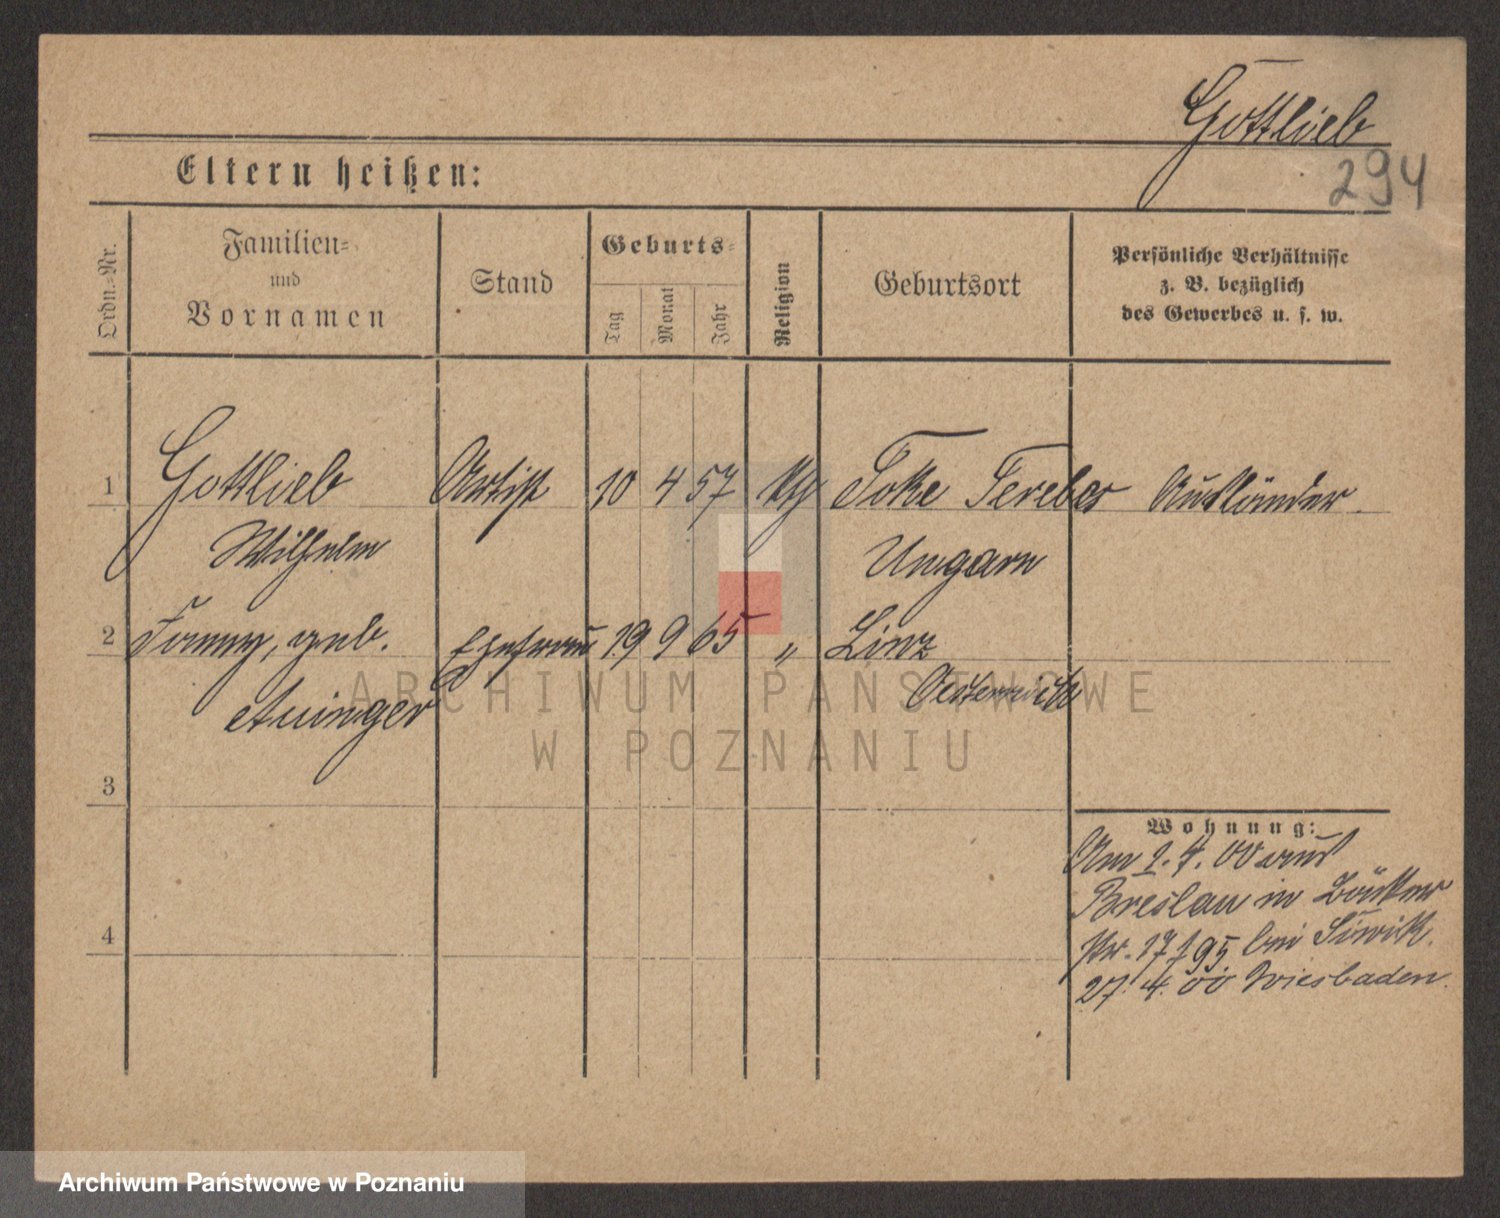 Gottlieb
294
Eltern heißen:
Ordn.-Nr.
Familien-
und
Vornamen
Stand
Geburts-
Tag
Monat
Jahr
Religion
Geburtsort
Persönliche Verhältnisse
z. B. bezüglich
des Gewerbes u. s. w.
1 Gottlieb Artist 10 4 57 Toke Terebes Ausländer.
Wilhelm Ungarn
2 Fanny, geb. Ehefrau 19 9 65 " Linz
Auinger Oesterreich
ARCHIWUM PAŃSTWOWE
W POZNANIU
3
Wohnung:
Am 2. 4. 00 aus
Breslau in
4
Nr. 17 b. 195 bei
27. 4. 00 Wiesbaden.
Archiwum Państwowe w Poznaniu